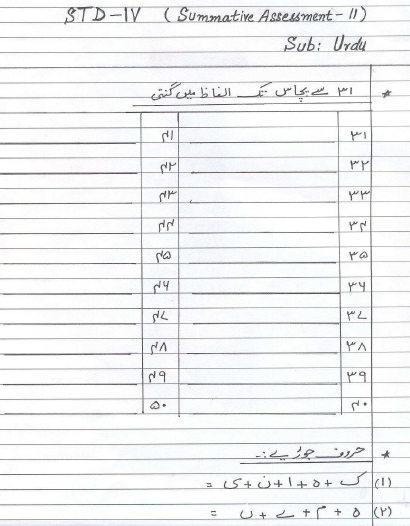 STD-IV (Summative Assessment-II)
Sub: Urdu
* ۳۱ سے پچاس تک الفاظ میں گنتی
۳۱ ۴۱
۳۲ ۴۲
۳۳ ۴۳
۳۴ ۴۴
۳۵ ۴۵
۳۶ ۴۶
۳۷ ۴۷
۳۸ ۴۸
۳۹ ۴۹
۴۰ ۵۰
* حروف جوڑیے:-
(۱) ک + ہ + ا + ن + ی =
(۲) ہ + م + ے + ں =